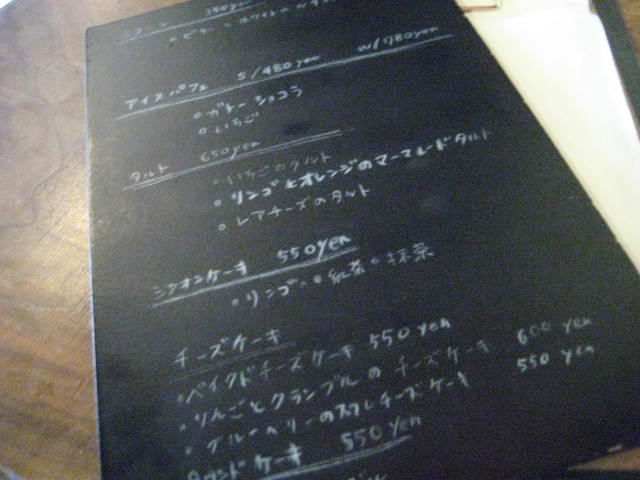 アイスパフェ S/480yen W/780yen
・ガトーショコラ
・いちご
タルト 650yen
・いちごのタルト
・リンゴとオレンジのマーマレードタルト
・レアチーズのタルト
シフォンケーキ 550yen
・リンゴ・紅茶・抹茶
チーズケーキ
・ベイクドチーズケーキ 550 yen
・りんごとクランブルのチーズケーキ 600 yen
・ブルーベリーのスフレチーズケーキ 550 yen
パウンドケーキ 550 yen